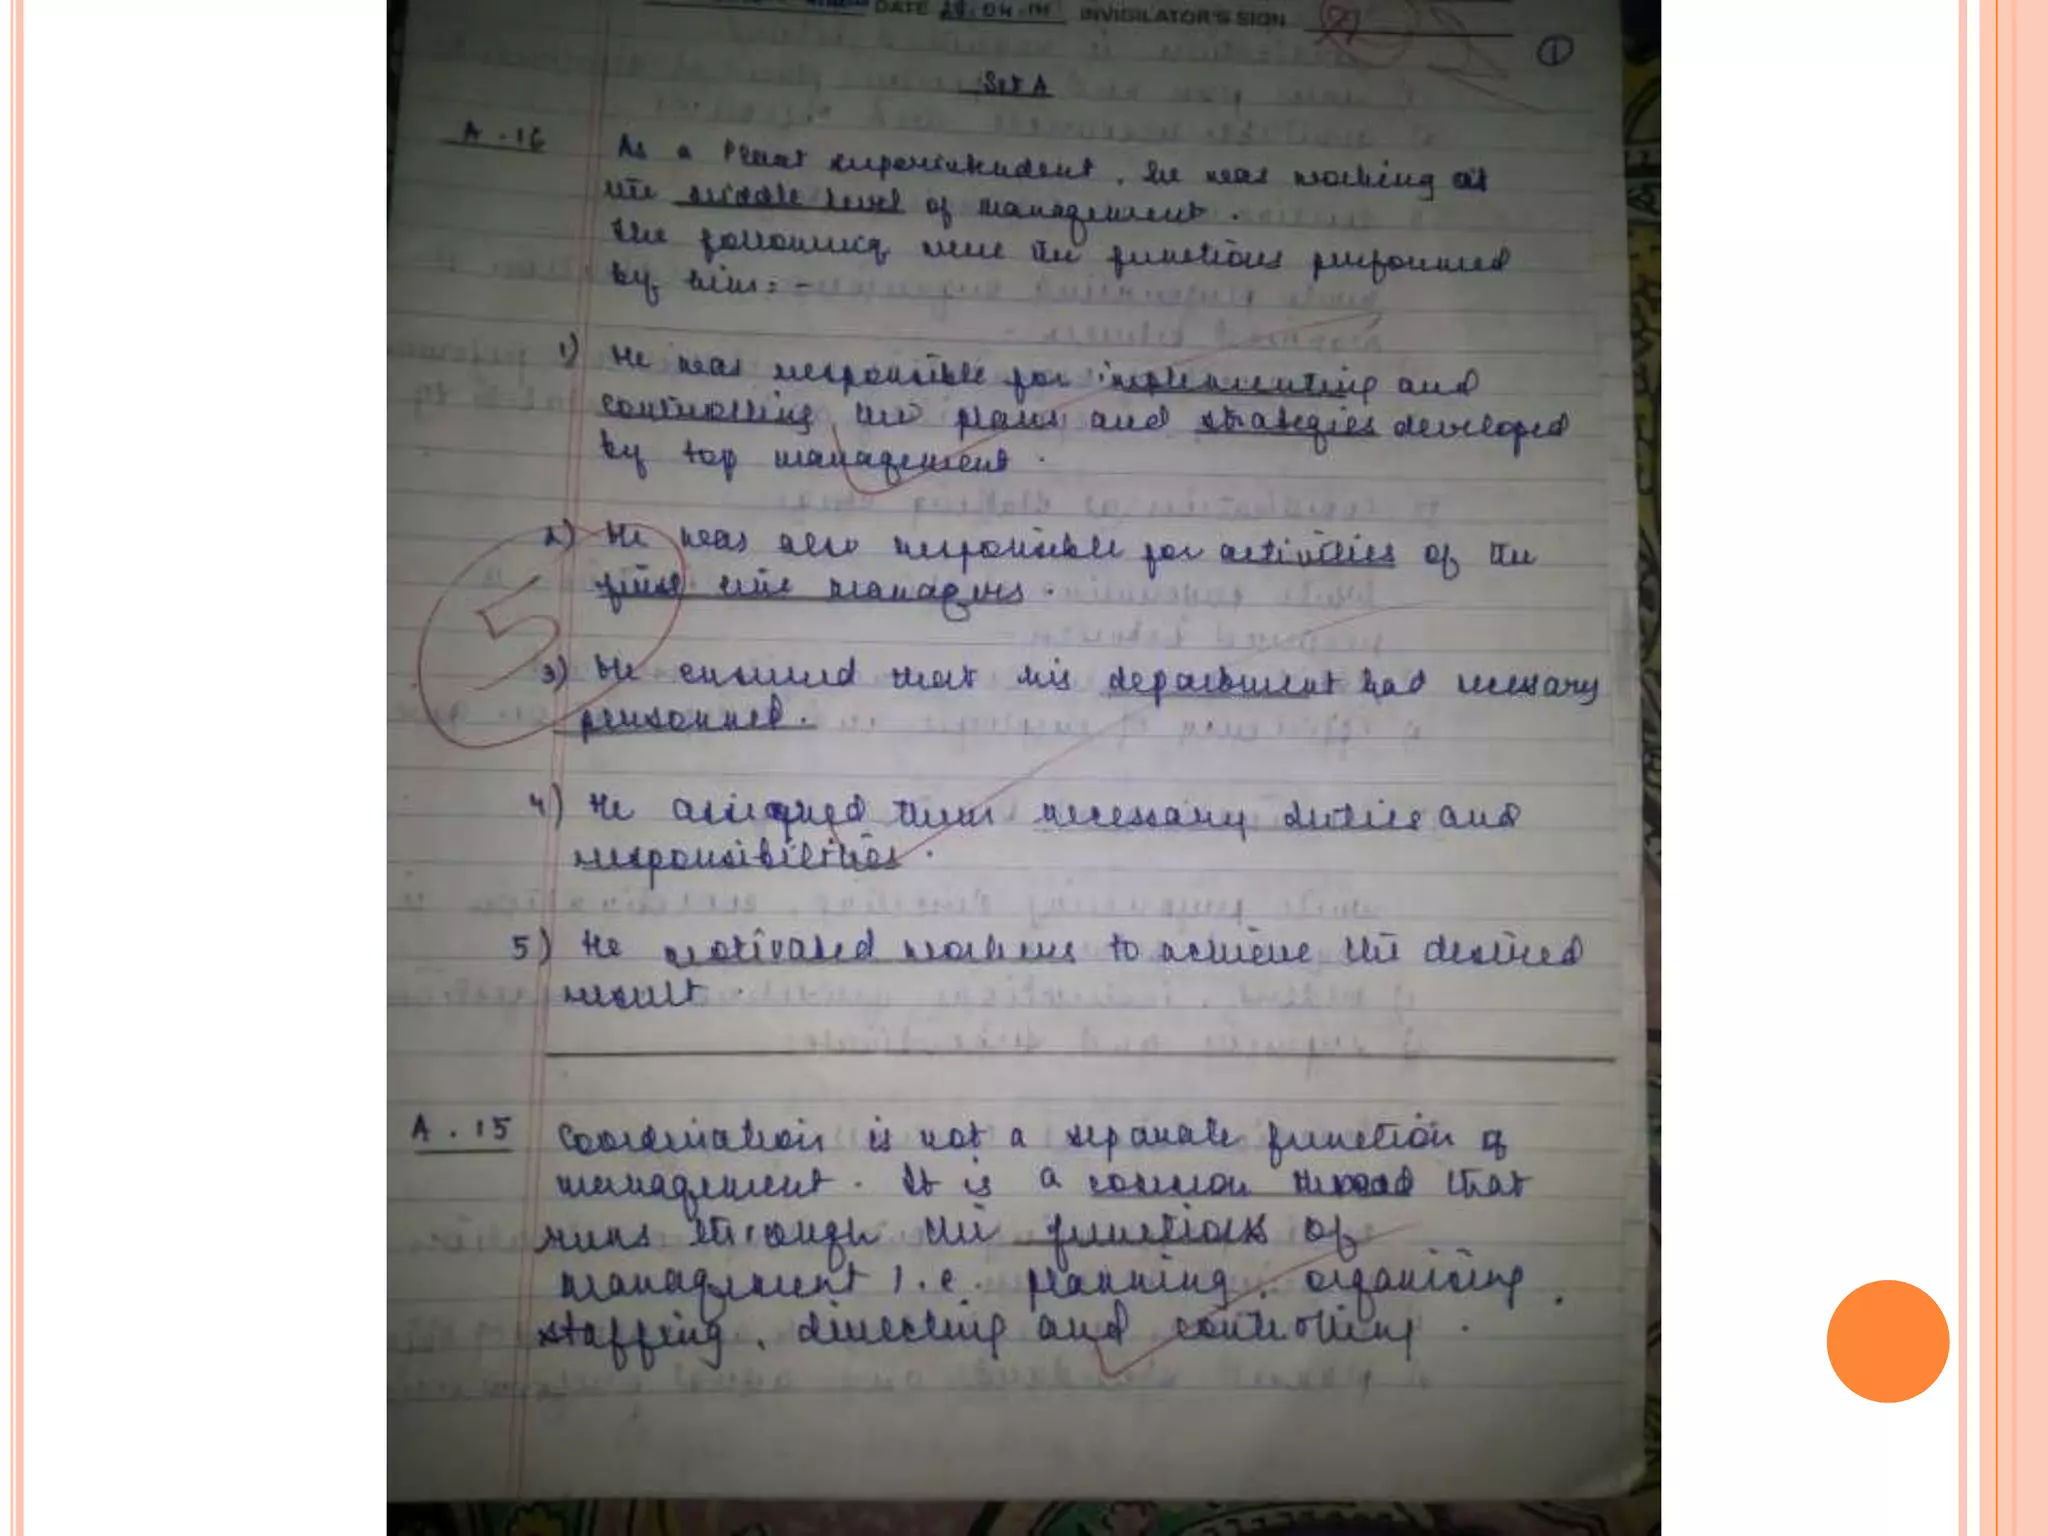 DATE 28.04. INVIGILATOR'S SIGN
1
Set A
A.16 As a Plant superintendent, he was working at
the middle level of management.
The following were the functions performed
by him:-
1) He was responsible for implementing and
controlling the plans and strategies developed
by top management.
2) He was also responsible for activities of the
first line managers.
3) He ensured that his department had necessary
personnel.
5
4) He assigned them necessary duties and
responsibilities.
5) He motivated workers to achieve the desired
result.
A.15 Coordination is not a separate function of
management. It is a common thread that
runs through the functions of
management i.e. planning, organising,
staffing, directing and controlling.